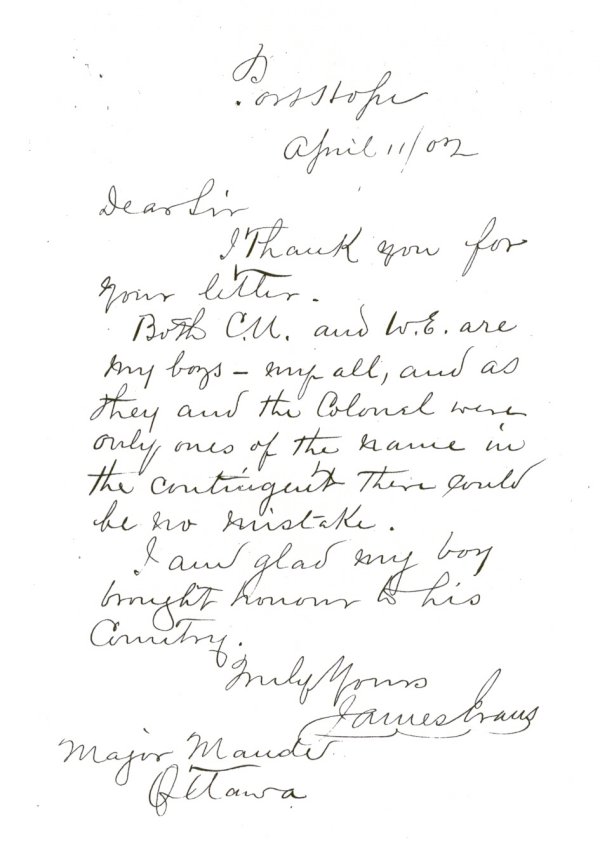 Port Hope
April 11/02
Dear Sir
I Thank you for
your letter.
Both C.U. and W.E. are
my boys – my all, and as
they and the Colonel were
only ones of the name in
the contingent there could
be no mistake.
I am glad my boy
brought honour to his
Country.
Truly Yours
James Evans
Major Maude
Ottawa